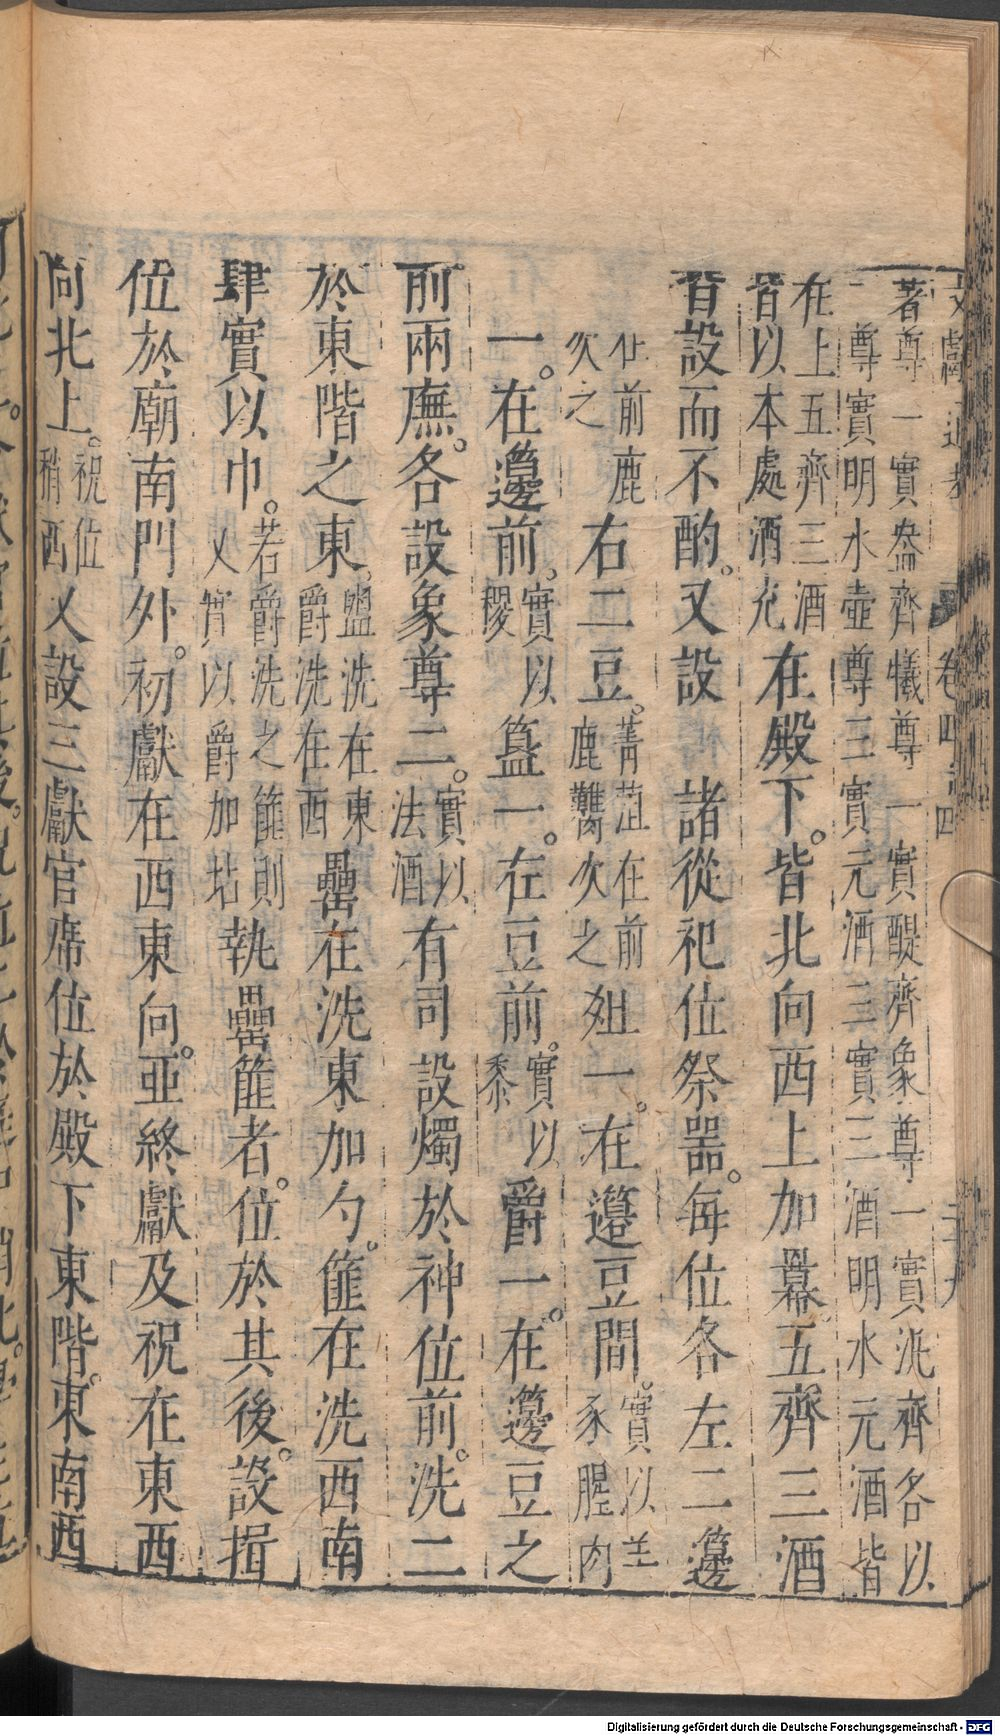 文獻通考 卷四十四 三十九
著尊一實盎齊犧尊一實醍齊象尊一實泛齊各以
一尊實明水壺尊三實元酒三實三酒明水元酒皆
在上五齊三酒
皆以本處酒充在殿下。皆北向西上加羃五齊三酒
皆設而不酌。又設　諸從祀位祭器。每位各左二籩
在前鹿
次之右二豆。菁菹在前
鹿臡次之俎一。在籩豆間。實以羊
豕腥肉
一。在籩前。實以
稷簋一。在豆前。實以
黍爵一。在籩豆之
前兩廡。各設象尊二。實以
法酒有司設燭於神位前。洗二
於東階之東。盥洗在東
爵洗在西罍在洗東加勺。篚在洗西南
肆實以巾。若爵洗之篚則
又實以爵加坫執罍篚者。位於其後。設揖
位於廟南門外。初獻在西東向。亞終獻及祝在東西
向北上。祝位
稍西又設三獻官席位於殿下東階。東南西
Digitalisierung gefördert durch die Deutsche Forschungsgemeinschaft - DFG